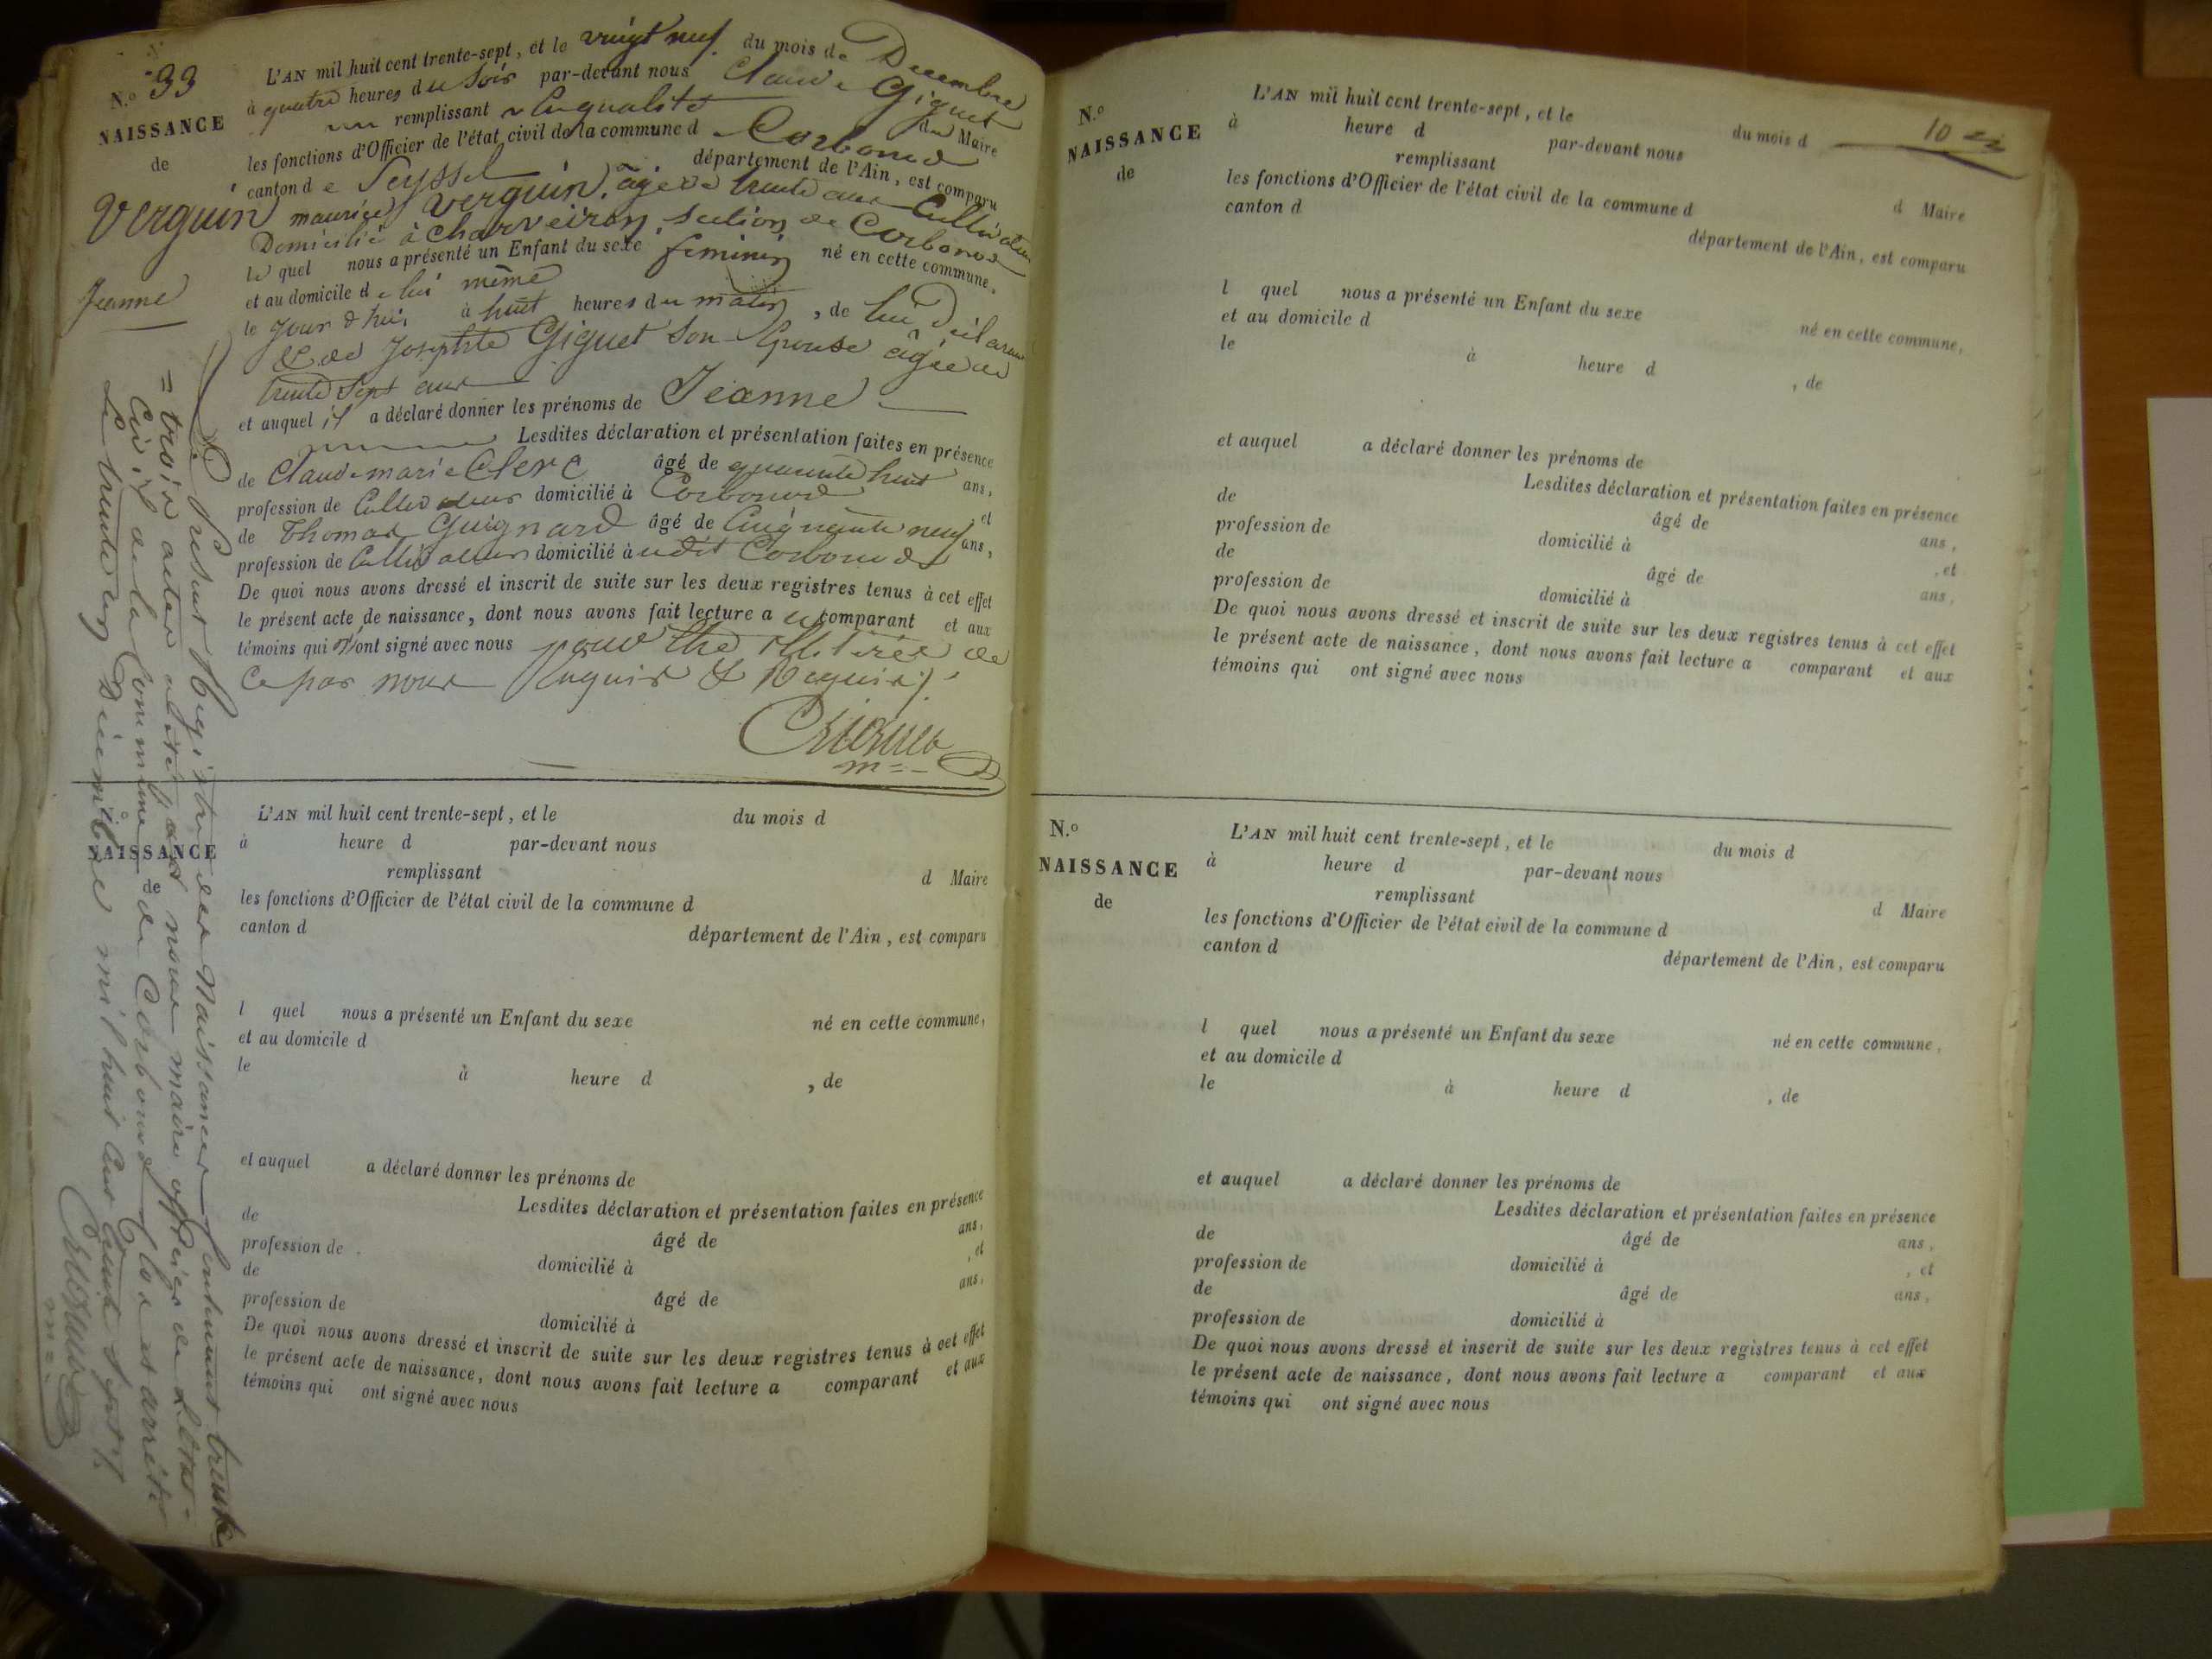 N.º 33
NAISSANCE
de
Verguin
Jeanne
L'AN mil huit cent trente-sept, et le vingt neuf du mois de Decembre
à quatre heures du Soir par-devant nous Claude Giguet
remplissant en laqualité du Maire
les fonctions d'Officier de l'état civil de la commune d Corbonod
canton de Seyssel département de l'Ain, est comparu
maurice Verguin, âgé de trente ans Cultivateur
Domicilié à Charveiron, section de Corbonod
le quel nous a présenté un Enfant du sexe feminin né en cette commune,
et au domicile de lui même
le jour d'hui à huit heures du matin, de lui Déclarant
& de Josephte Giguet Son Epouse âgée de
trente Sept ans
et auquel il a déclaré donner les prénoms de Jeanne
Lesdites déclaration et présentation faites en présence
de Claude marie Clerc âgé de quarante huit ans,
profession de Cultivateur domicilié à Corbonod et
de Thomas Guignard âgé de Cinquante neuf ans,
profession de Cultivateur domicilié à udit Corbonod
De quoi nous avons dressé et inscrit de suite sur les deux registres tenus à cet effet
le présent acte de naissance, dont nous avons fait lecture a u comparant et aux
témoins qui n'ont signé avec nous pour être illitérés de
Ce par nous Enquis & Requis
Giguet
m
Le présent Registre des Naissances Contenant trente
= trois actes a été par nous maire officier de L'état =
Civil de la Commune de Corbonod Clos et arrêté
Le trente un Décembre mil huit Cent trente Sept
Giguet
m
N.º
NAISSANCE
de
L'AN mil huit cent trente-sept, et le du mois d
à heure d par-devant nous
remplissant d Maire
les fonctions d'Officier de l'état civil de la commune d
canton d département de l'Ain, est comparu
l quel nous a présenté un Enfant du sexe né en cette commune,
et au domicile d
le à heure d , de
et auquel a déclaré donner les prénoms de
Lesdites déclaration et présentation faites en présence
de âgé de ans,
profession de domicilié à , et
de âgé de ans,
profession de domicilié à
De quoi nous avons dressé et inscrit de suite sur les deux registres tenus à cet effet
le présent acte de naissance, dont nous avons fait lecture a comparant et aux
témoins qui ont signé avec nous
10
N.º
NAISSANCE
de
L'AN mil huit cent trente-sept, et le du mois d
à heure d par-devant nous
remplissant d Maire
les fonctions d'Officier de l'état civil de la commune d
canton d département de l'Ain, est comparu
l quel nous a présenté un Enfant du sexe né en cette commune,
et au domicile d
le à heure d , de
et auquel a déclaré donner les prénoms de
Lesdites déclaration et présentation faites en présence
de âgé de ans,
profession de domicilié à , et
de âgé de ans,
profession de domicilié à
De quoi nous avons dressé et inscrit de suite sur les deux registres tenus à cet effet
le présent acte de naissance, dont nous avons fait lecture a comparant et aux
témoins qui ont signé avec nous
N.º
NAISSANCE
de
L'AN mil huit cent trente-sept, et le du mois d
à heure d par-devant nous
remplissant d Maire
les fonctions d'Officier de l'état civil de la commune d
canton d département de l'Ain, est comparu
l quel nous a présenté un Enfant du sexe né en cette commune,
et au domicile d
le à heure d , de
et auquel a déclaré donner les prénoms de
Lesdites déclaration et présentation faites en présence
de âgé de ans,
profession de domicilié à , et
de âgé de ans,
profession de domicilié à
De quoi nous avons dressé et inscrit de suite sur les deux registres tenus à cet effet
le présent acte de naissance, dont nous avons fait lecture a comparant et aux
témoins qui ont signé avec nous